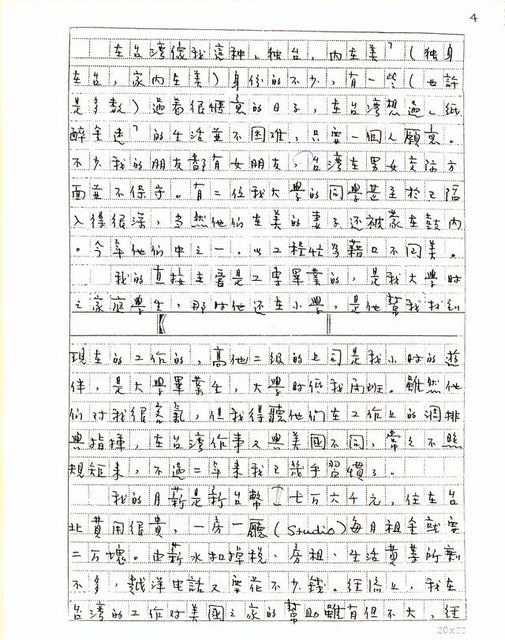 4
在台灣像我這种「独台,内在美」(独身
在台,家内在美)身份的不少,有一些(也許
是多数)過着很惬意的日子,在台灣想過「紙
醉金迷」的生活並不困难,只要一個人願意。
不少我的朋友都有女朋友,台灣在男女交际方
面並不保守。有二位我大學的同學甚至於已陷
入得很深,当然他们在美的妻子还被蒙在鼓内
。今年他们中之一,以工程忙為藉口不回美。
我的直接主管是工專畢業的,是我大學时
之家庭學生,那时他还在小學,是他幫我找到
現在的工作的,高他二級的上司是我小时的遊
伴,是大學畢業生,大學时低我两班。雖然他
们对我很客氣,但我得聽他们在工作上的調排
與指揮,在台灣作事又與美國不同,常々不照
規矩来,不過二年来我已幾乎習慣了。
我的月薪是新台幣七万六千元,住在台
北費用很貴,一房一廳(Studio)每月租金就要
二万塊。由薪水扣掉税、房租、生活費等所剩
不多,越洋电話又要花不少錢。經濟上,我在
台灣的工作对美國之家的幫助雖有但不大,經
20x20